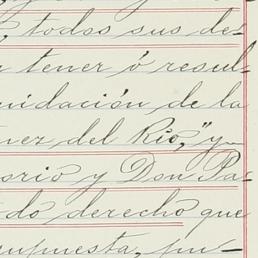 todos sus de-
tener ó resul-
nidación de la
nez del Rio," y
orio y Don Pa-
do derecho que
supuesta, pu-